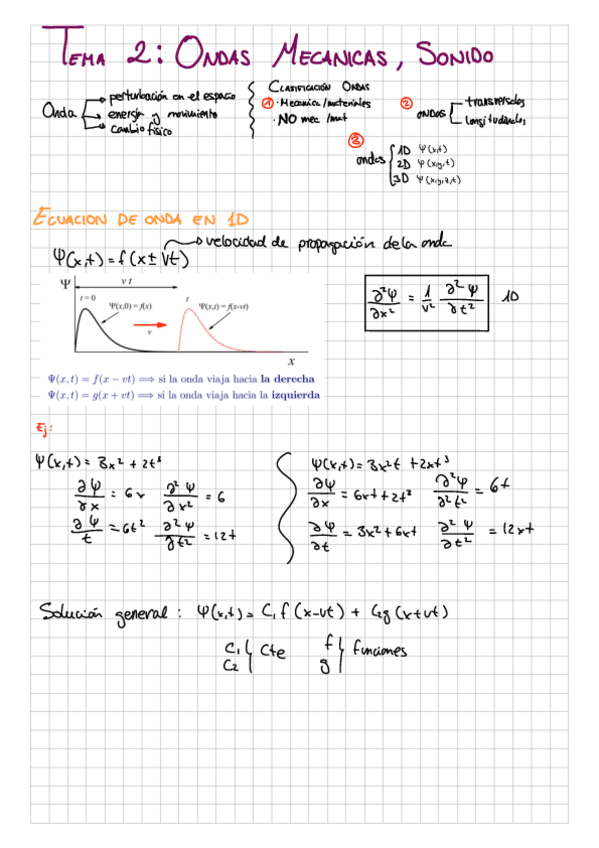 TEMA 2: ONDAS MECANICAS, SONIDO
Onda
perturbación en el espacio
energía y movimiento
cambio físico
CLASIFICACIÓN ONDAS
① · Mecanica/materiales
· NO mec/mat
② ondas
transversales
longitudinales
③
ondas
1D Ψ(x,t)
2D Ψ(x,y,t)
3D Ψ(x,y,z,t)
ECUACION DE ONDA EN 1D
velocidad de propagación de la onda
Ψ(x,t) = f(x ± vt)
Ψ
v t
t = 0
Ψ(x,0) = f(x)
v
t
Ψ(x,t) = f(x-vt)
x
∂²Ψ/∂x² = 1/v² ∂²Ψ/∂t² 1D
Ψ(x, t) = f(x − vt) ⟹ si la onda viaja hacia la derecha
Ψ(x, t) = g(x + vt) ⟹ si la onda viaja hacia la izquierda
Ej:
Ψ(x,t) = 3x² + 2t³
∂Ψ/∂x = 6x ∂²Ψ/∂x² = 6
∂Ψ/t = 6t² ∂²Ψ/∂t² = 12t
Ψ(x,t) = 3x²t + 2xt³
∂Ψ/∂x = 6xt + 2t³ ∂²Ψ/∂²t² = 6t
∂Ψ/∂t = 3x² + 6xt ∂²Ψ/∂t² = 12xt
Solución general: Ψ(x,t) = C₁ f(x-vt) + C₂g(x+vt)
C₁
C₂
Cte
f
g
funciones